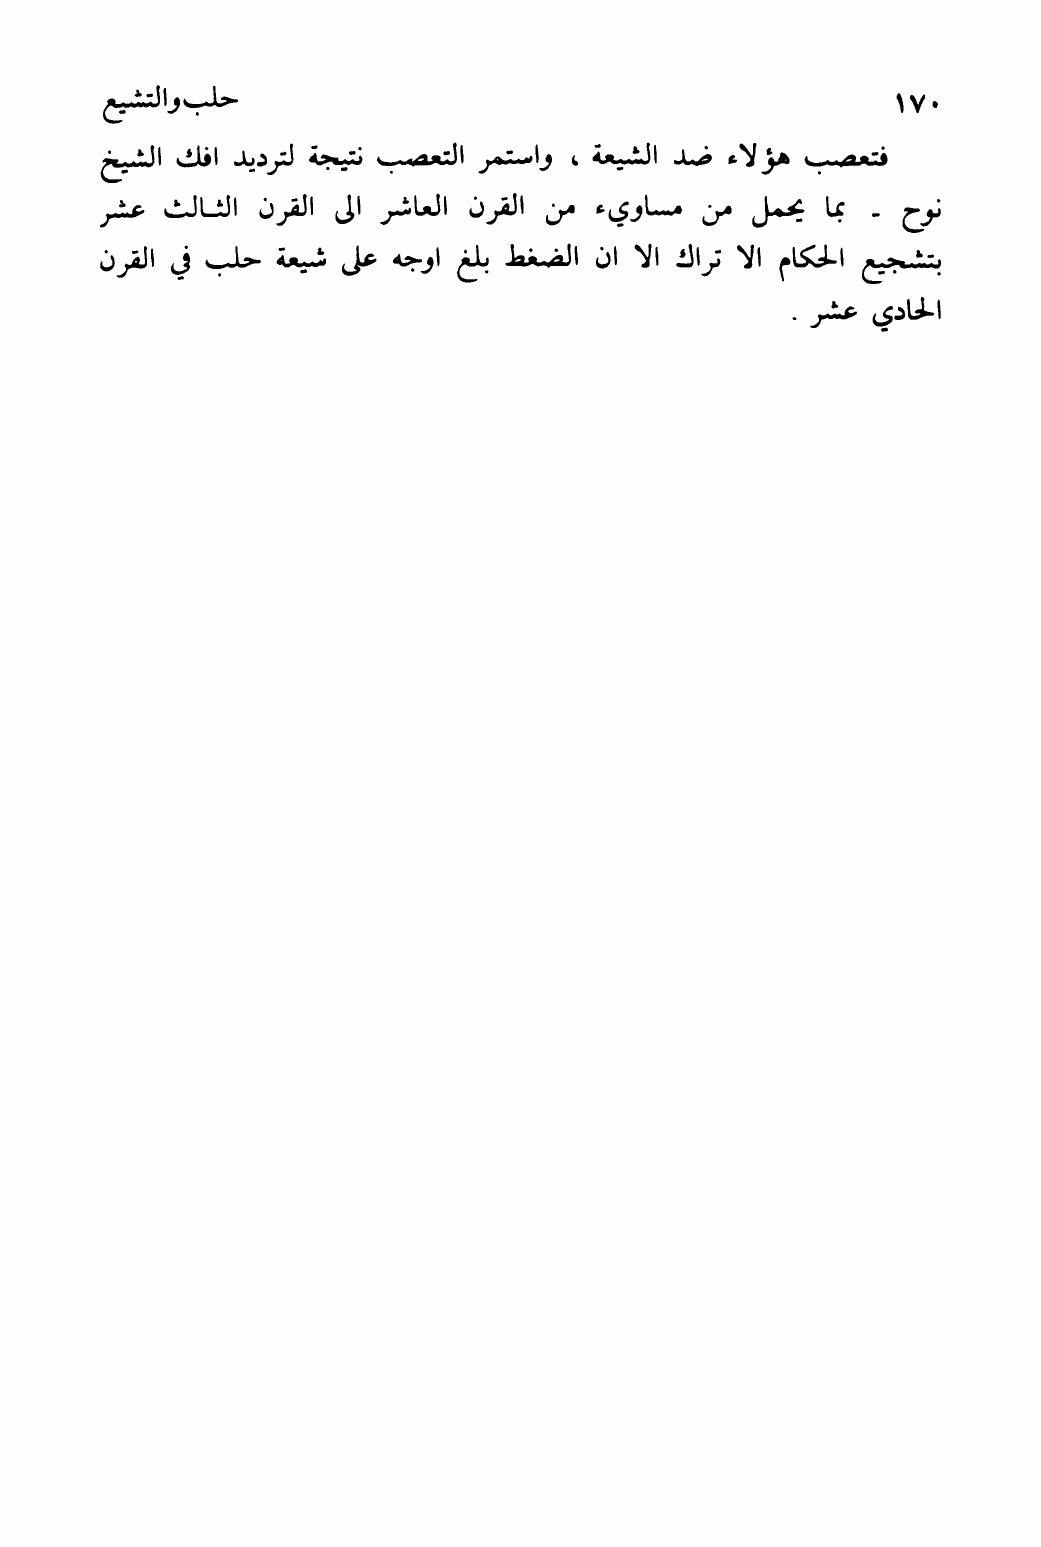 ١٧٠ حلب والتشيع
فتعصب هؤلاء ضد الشيعة ، واستمر التعصب نتيجة لترديد افك الشيخ
نوح - بما يحمل من مساويء من القرن العاشر الى القرن الثالث عشر
بتشجيع الحكام الا تراك الا ان الضغط بلغ اوجه على شيعة حلب في القرن
الحادي عشر .